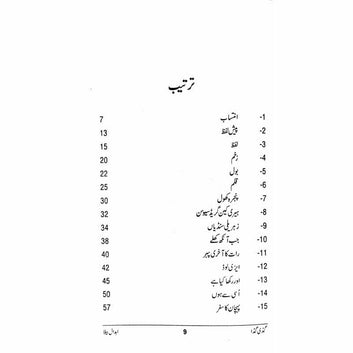 ترتیب
1- انتساب 7
2- پیش لفظ 13
3- لفظ 15
4- زخم 20
5- بول 22
6- قلم 25
7- پنجرہ کھول 30
8- ہیری کین گریڈ سیومن 32
9- زہریلی سنڈیاں 34
10- جب آنکھ کھلے 38
11- رات کا آخری پہر 40
12- ایزی لوڈ 42
13- اور رکھا کیا ہے 45
14- اُسی سے ہوں 50
15- پہچان کا سفر 57
9